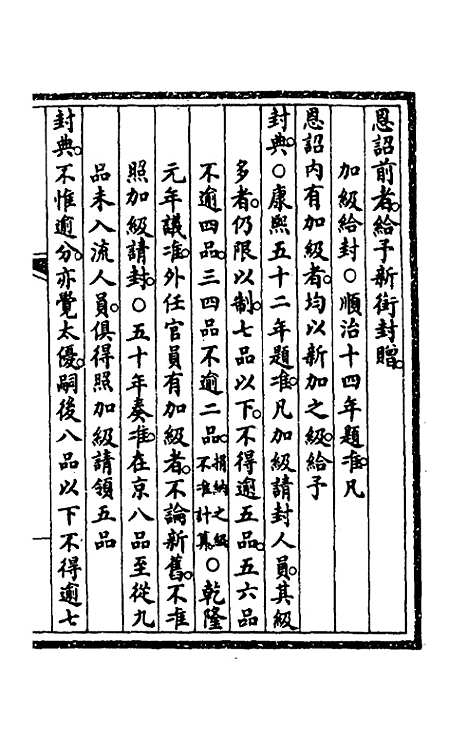 恩詔前者。給予新銜封贈。
加級給封○順治十四年題准。凡
恩詔內有加級者。均以新加之級。給予
封典。○康熙五十二年題准。凡加級請封人員。其級
多者。仍限以制。七品以下。不得逾五品。五六品
不逾四品。三四品不逾二品。捐納之級不准計算。○乾隆
元年議准。外任官員有加級者。不論新舊。不准
照加級請封。○五十年奏准。在京八品至從九
品未入流人員。俱得照加級請領五品
封典。不惟逾分。亦覺太優。嗣後八品以下不得逾七